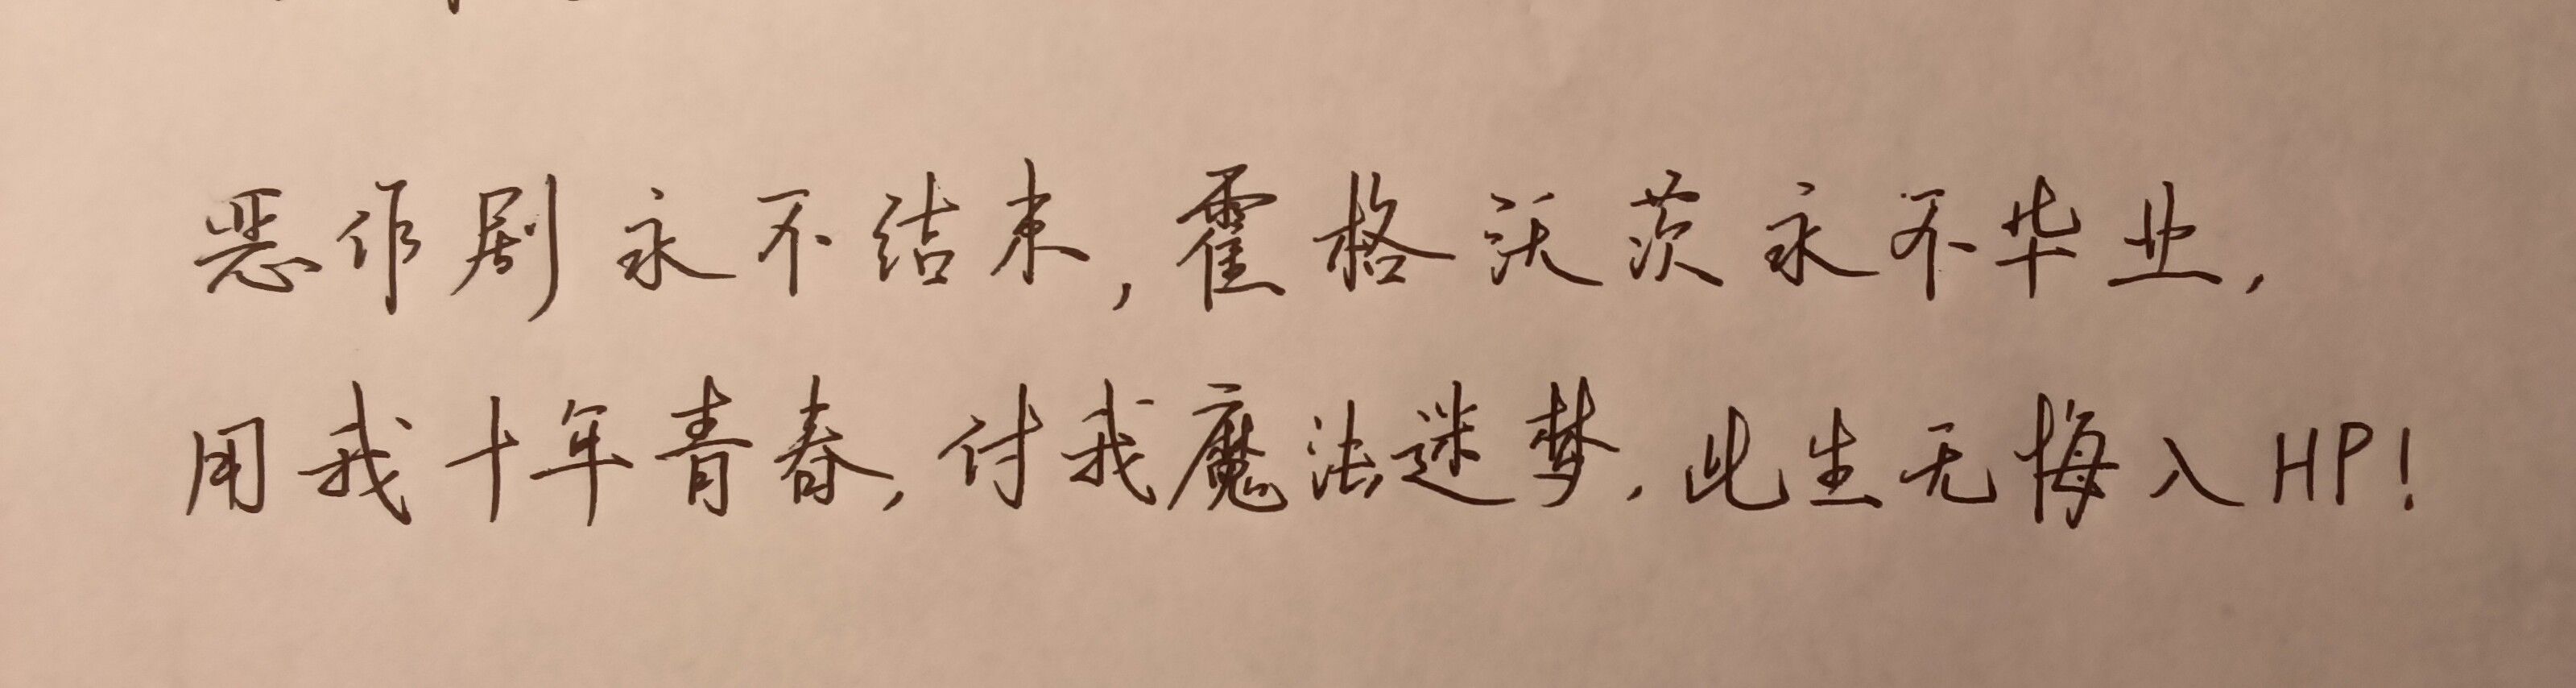 恶作剧永不结束,霍格沃茨永不毕业,
用我十年青春,付我魔法迷梦.此生无悔入HP!